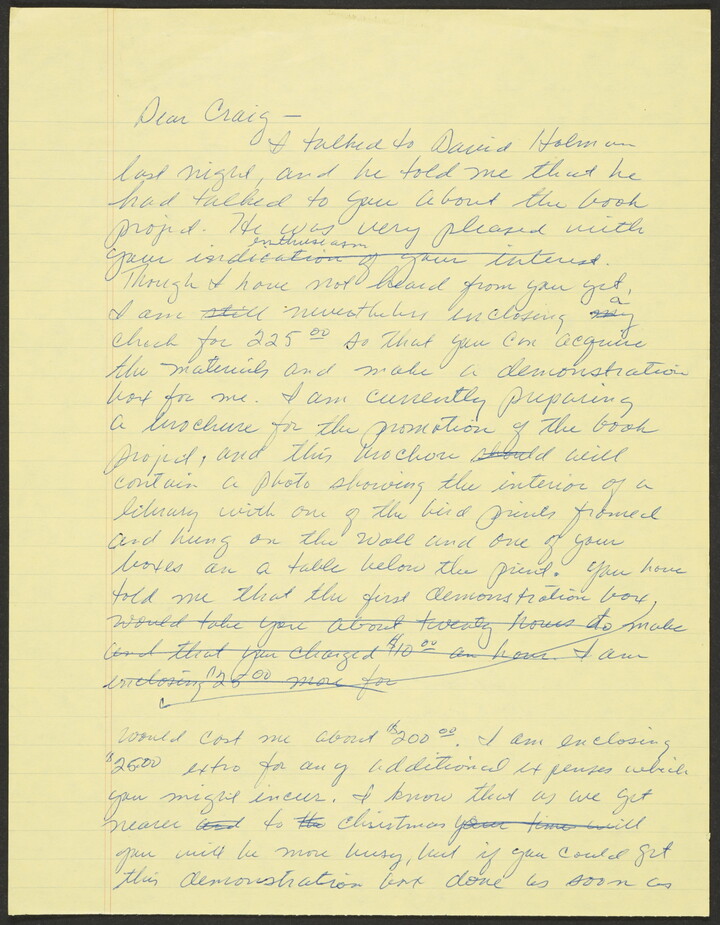 Dear Craig —
I talked to David Holman
last night, and he told me that he
had talked to you about the book
project. He was very pleased with
enthusiasm
your indication of your interest.
Though I have not heard from you yet,
a
I am still nevertheless enclosing my
check for 225 00 so that you can acquire
the materials and make a demonstration
box for me. I am currently preparing
a brochure for the promotion of the book
project, and this brochure should will
contain a photo showing the interior of a
library with one of the bird prints framed
and hung on the wall and one of your
boxes on a table below the print. You have
told me that the first demonstration box,
would take you about twenty hours to make
and that you charged $10 00 an hour. I am
enclosing $25 00 more for
would cost me about $200 00. I am enclosing
$25 00 extra for any additional expenses which
you might incur. I know that as we get
nearer and to the christmas your time will
you will be more busy, but if you could get
this demonstration box done as soon as